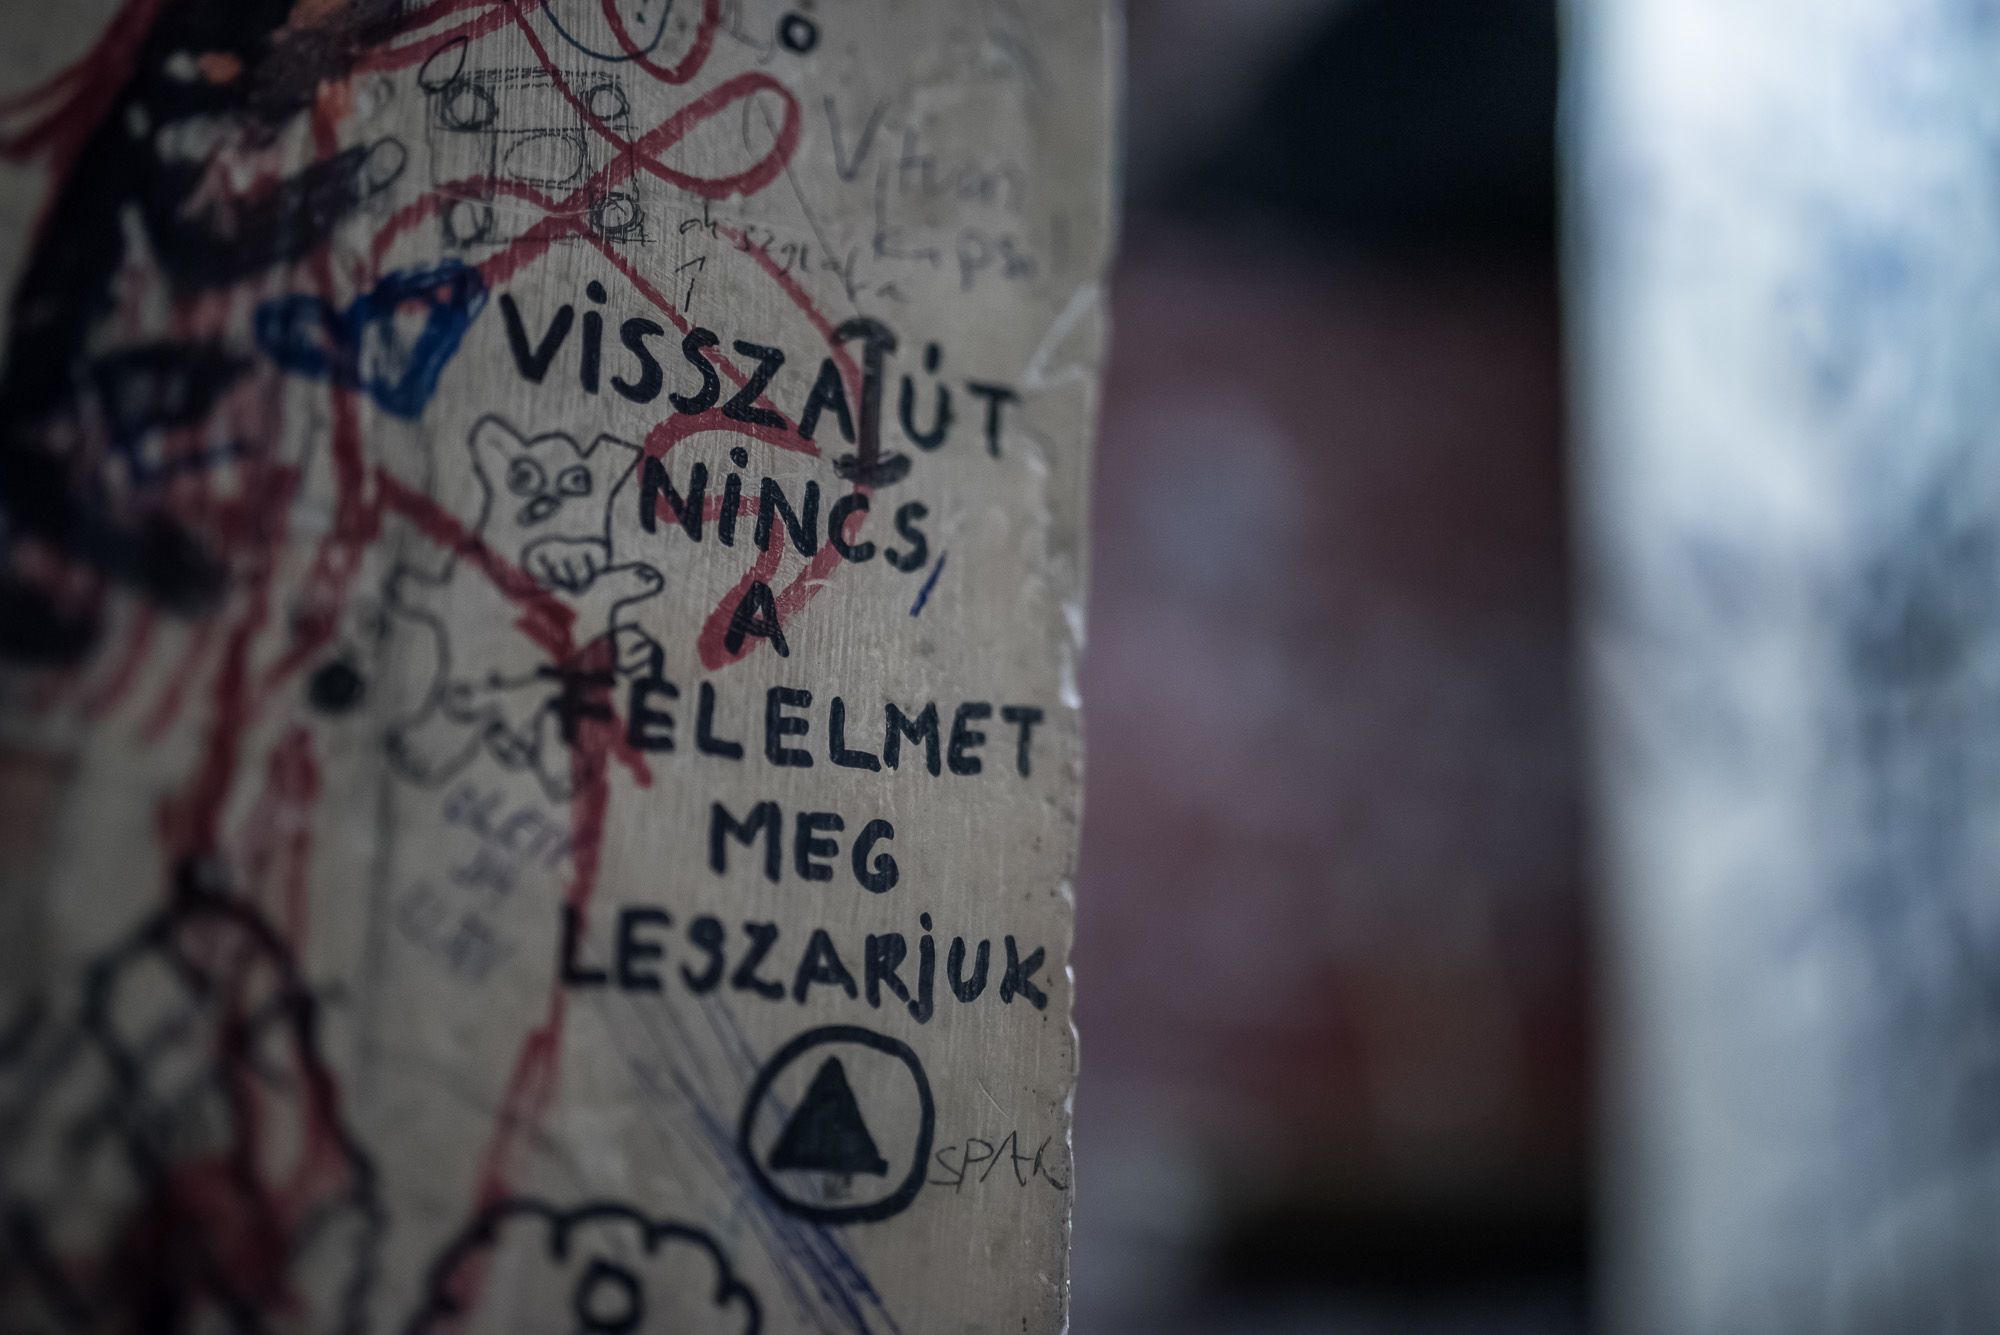 VISSZAÚT
NINCS,
A
FELELMET
MEG
LESZARJUK
SPAK